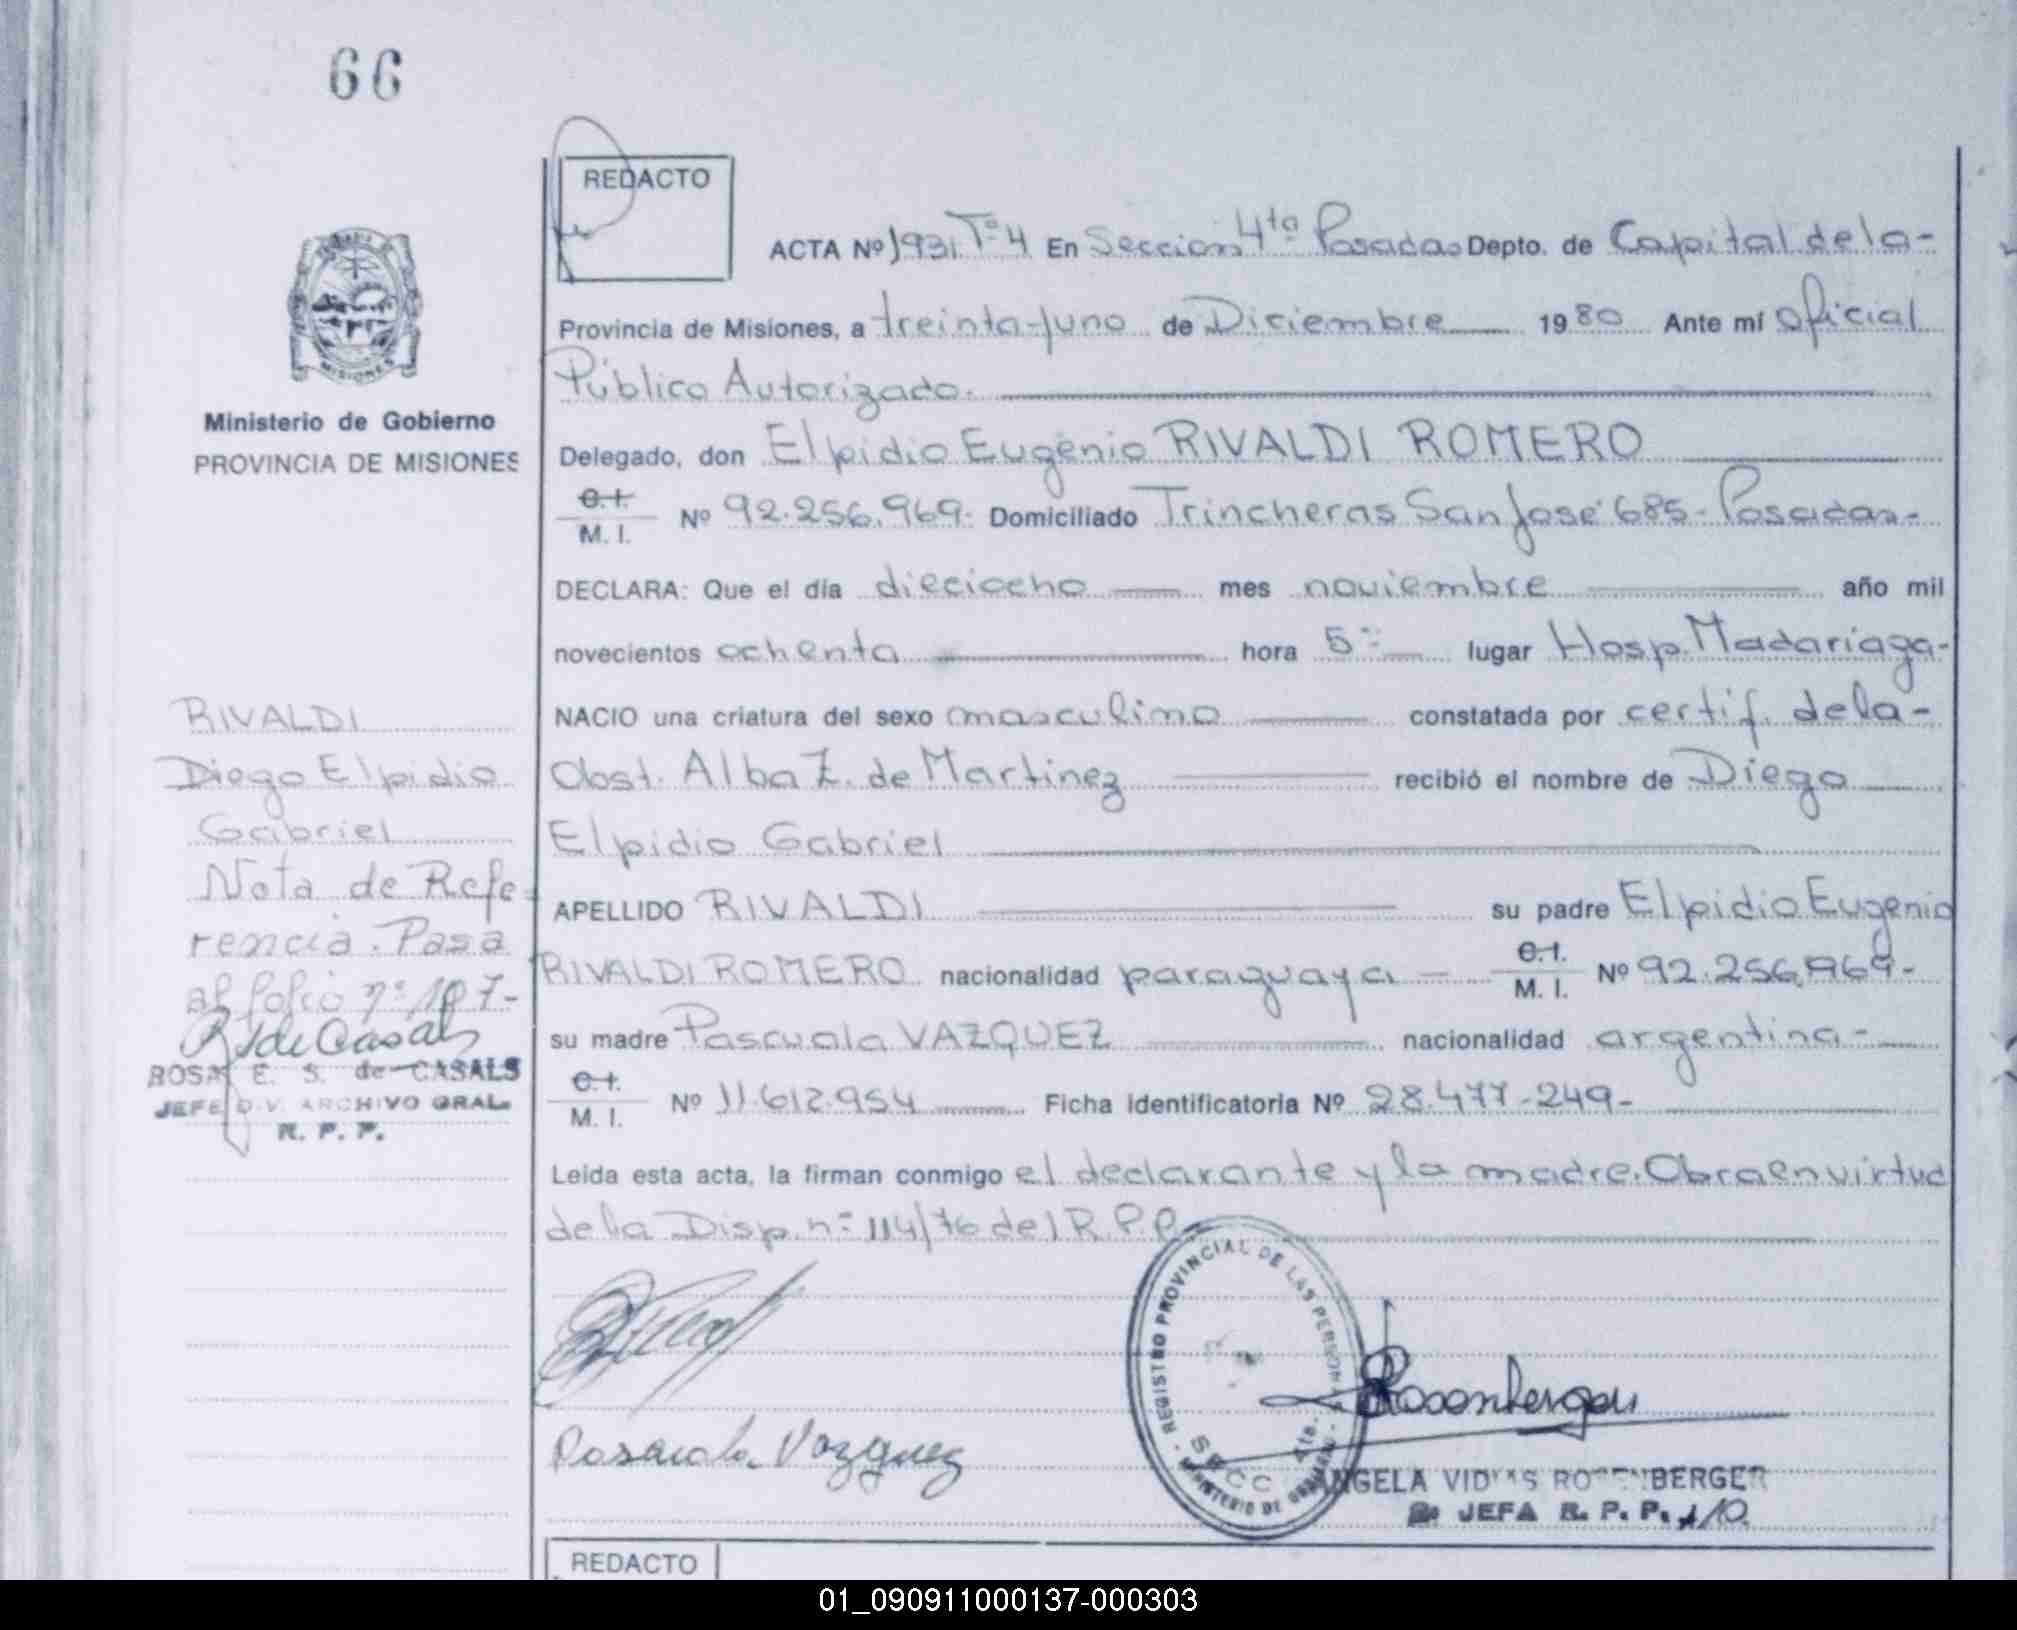 66
REDACTO
ACTA Nº 1931 Tº 4 En Seccion 4ta Posadas Depto. de Capital de la-
Provincia de Misiones, a treinta y uno de Diciembre 1980 Ante mí Oficial
Público Autorizado.
Delegado, don Elpidio Eugenio RIVALDI ROMERO
C.I.
M. I. Nº 92.256.969- Domiciliado Trincheras San José 685- Posadas-
DECLARA: Que el día dieciocho mes noviembre año mil
novecientos ochenta hora 5- lugar Hosp. Madariaga-
NACIO una criatura del sexo masculino constatada por certif. de la-
Obst. Alba Z. de Martinez recibió el nombre de Diego
Elpidio Gabriel
APELLIDO RIVALDI su padre Elpidio Eugenio
RIVALDI ROMERO nacionalidad paraguaya C.I.
M. I. Nº 92.256.969-
su madre Pascuala VAZQUEZ nacionalidad argentina-
C.I.
M. I. Nº 11.612.954 Ficha identificatoria Nº 28.477-249-
Leída esta acta, la firman conmigo el declarante y la madre. Obra en virtud
de la Disp. nº 114/76 del R.P.P.
Pascuala Vazquez
- REGISTRO PROVINCIAL DE LAS PERSONAS -
SECC 4ta.
MINISTERIO DE GOBIERNO
Rosenberger
ANGELA VIDMAS ROSENBERGER
JEFA R. P. P.
REDACTO
MISIONES
Ministerio de Gobierno
PROVINCIA DE MISIONES
RIVALDI
Diego Elpidio
Gabriel
Nota de Refe-
rencia. Pasa
al folio nº 107-
R S de Casals
ROSA E. S. de CASALS
JEFE DIV. ARCHIVO GRAL.
R. P. P.
01_090911000137-000303